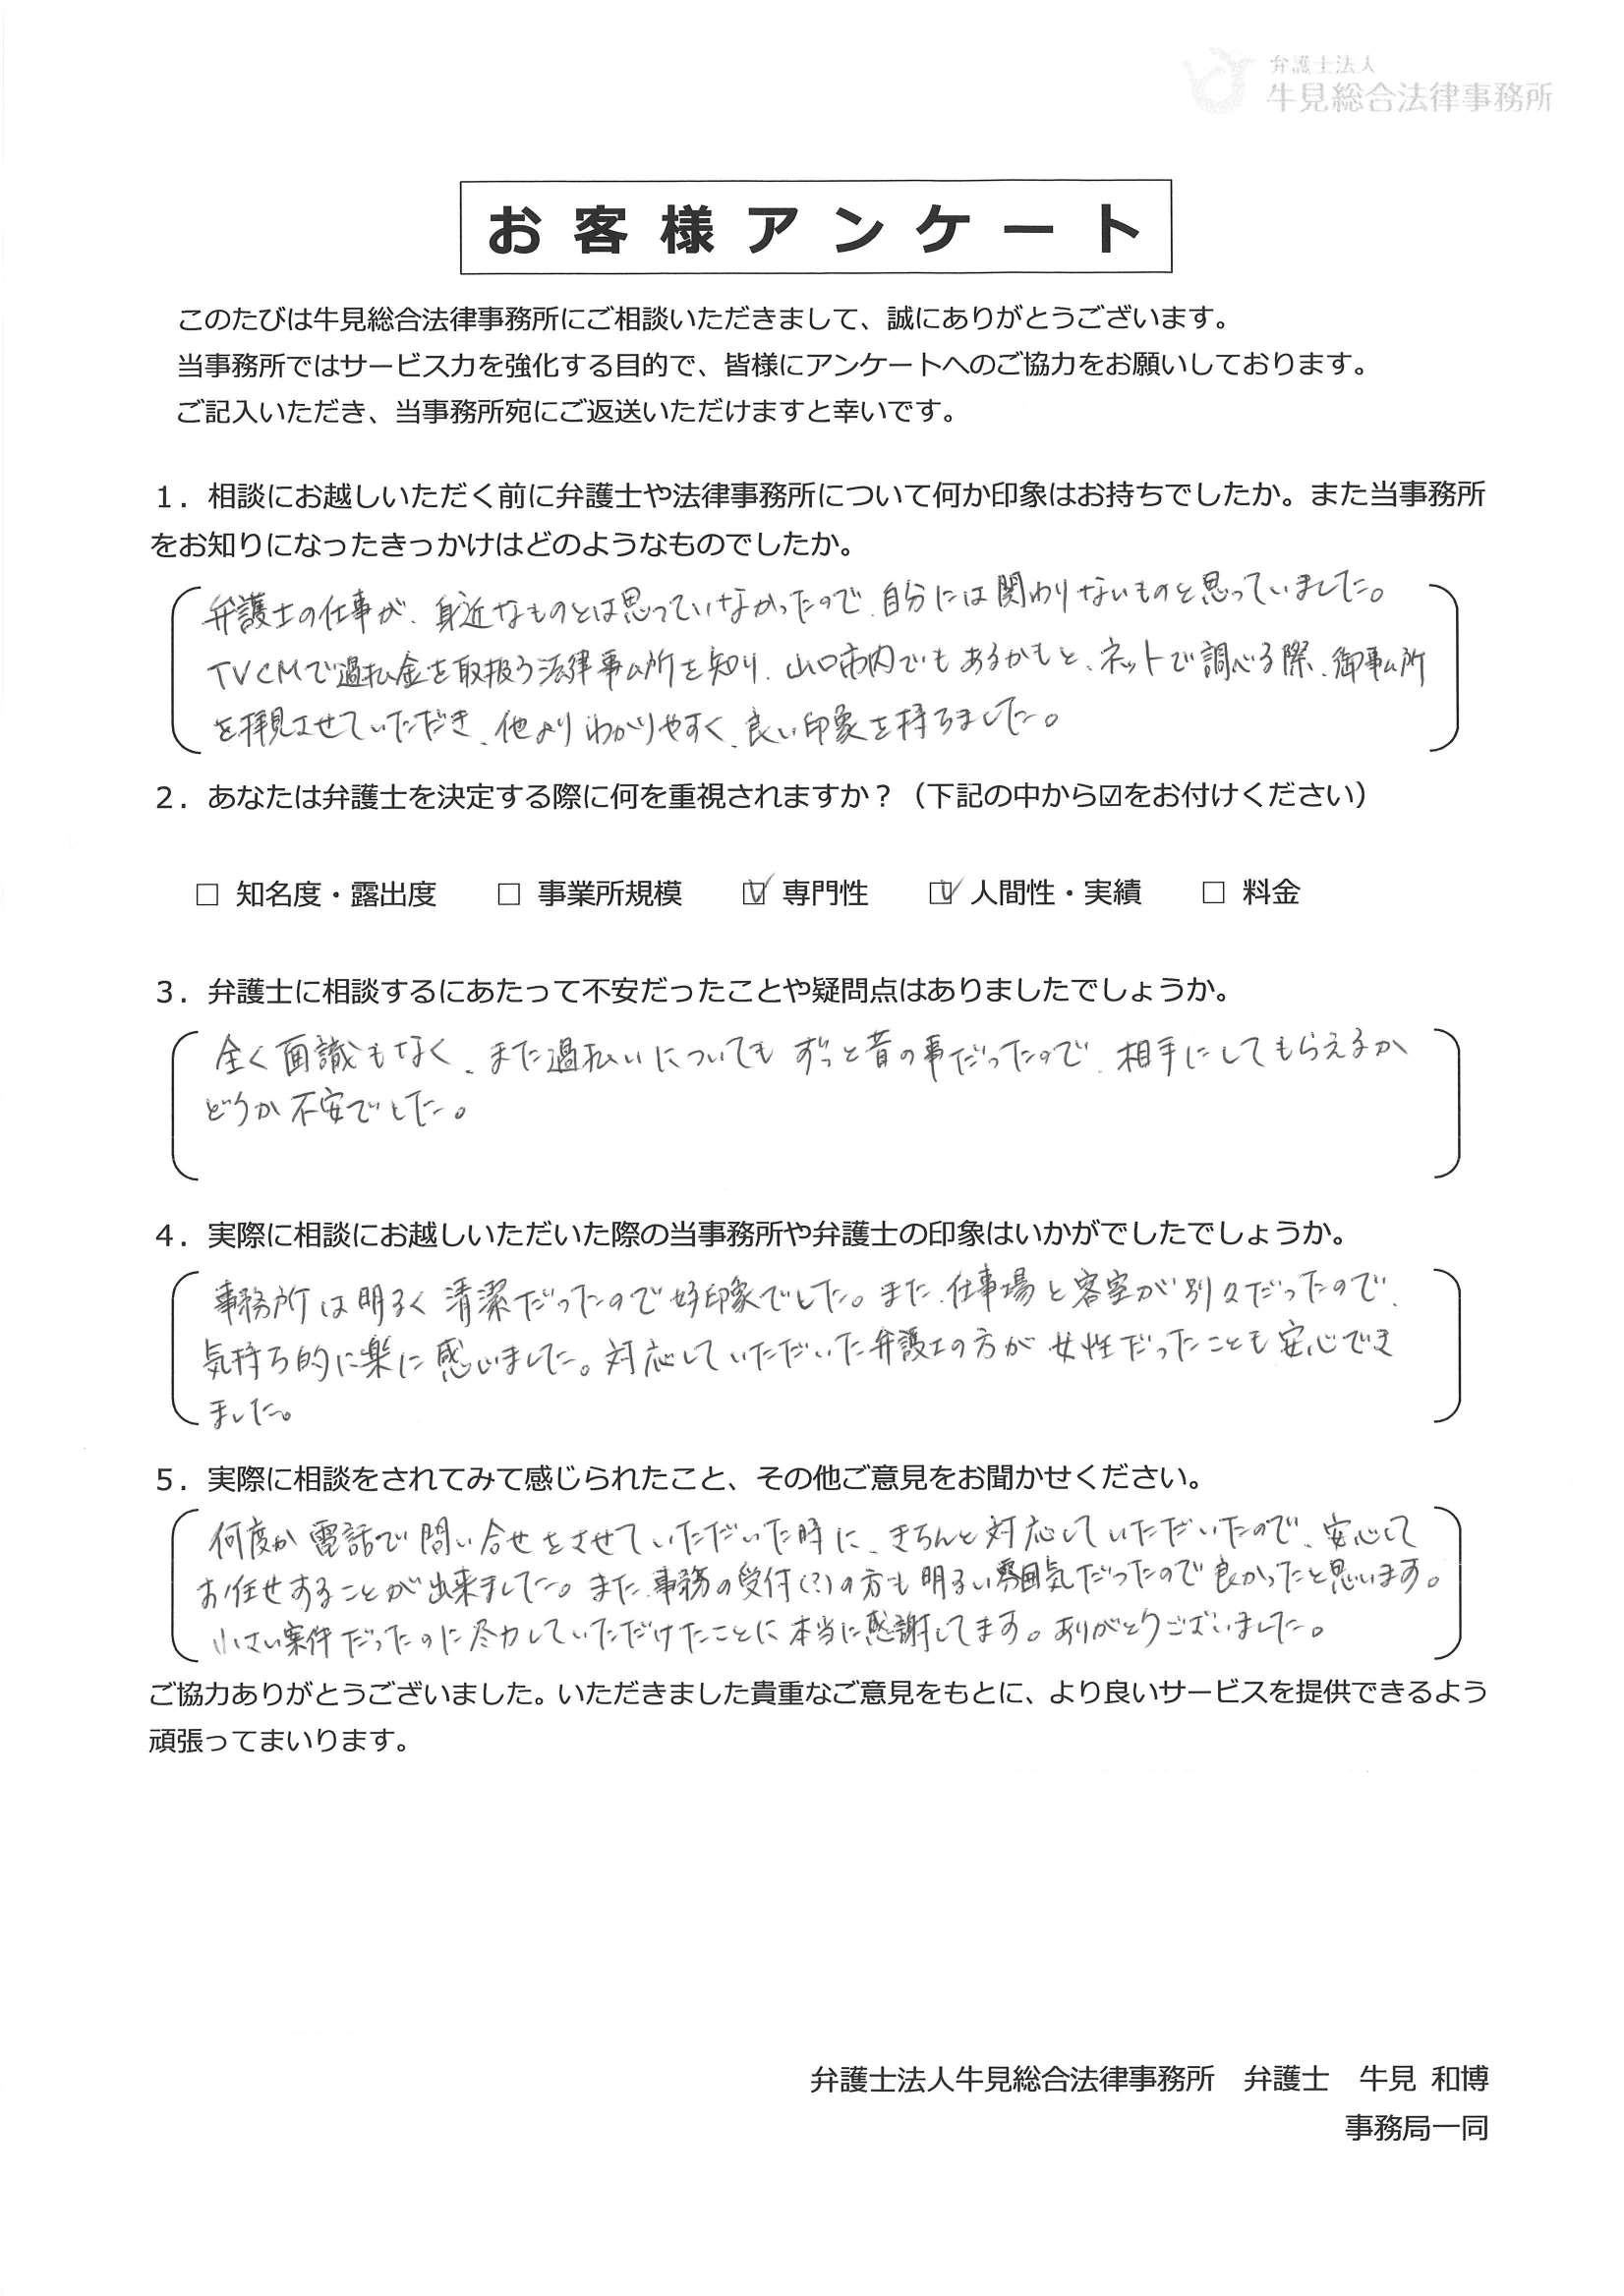 弁護士法人
牛見総合法律事務所
お客様アンケート
このたびは牛見総合法律事務所にご相談いただきまして、誠にありがとうございます。
当事務所ではサービス力を強化する目的で、皆様にアンケートへのご協力をお願いしております。
ご記入いただき、当事務所宛にご返送いただけますと幸いです。
１．相談にお越しいただく前に弁護士や法律事務所について何か印象はお持ちでしたか。また当事務所
をお知りになったきっかけはどのようなものでしたか。
弁護士の仕事が、身近なものとは思っていなかったので、自分には関わりないものと思っていました。
TVCMで過払金を取扱う法律事ム所を知り、山口市内でもあるかもと、ネットで調べる際、御事ム所
を拝見させていただき、他よりわかりやすく、良い印象を持ちました。
２．あなたは弁護士を決定する際に何を重視されますか？（下記の中から☑をお付けください）
□ 知名度・露出度 □ 事業所規模 ☑ 専門性 ☑ 人間性・実績 □ 料金
３．弁護士に相談するにあたって不安だったことや疑問点はありましたでしょうか。
全く面識もなく、また過払いについてもずっと昔の事だったので、相手にしてもらえるか
どうか不安でした。
４．実際に相談にお越しいただいた際の当事務所や弁護士の印象はいかがでしたでしょうか。
事務所は明るく清潔だったので好印象でした。また、仕事場と客室が別々だったので、
気持ち的に楽に感じました。対応していただいた弁護士の方が女性だったことも安心でき
ました。
５．実際に相談をされてみて感じられたこと、その他ご意見をお聞かせください。
何度か電話で問い合せをさせていただいた時に、きちんと対応していただいたので、安心して
お任せすることが出来ました。また、事務の受付(?)の方も明るい雰囲気だったので良かったと思います。
小さい案件だったのに尽力していただけたことに本当に感謝してます。ありがとうございました。
ご協力ありがとうございました。いただきました貴重なご意見をもとに、より良いサービスを提供できるよう
頑張ってまいります。
弁護士法人牛見総合法律事務所　弁護士　牛見 和博
事務局一同